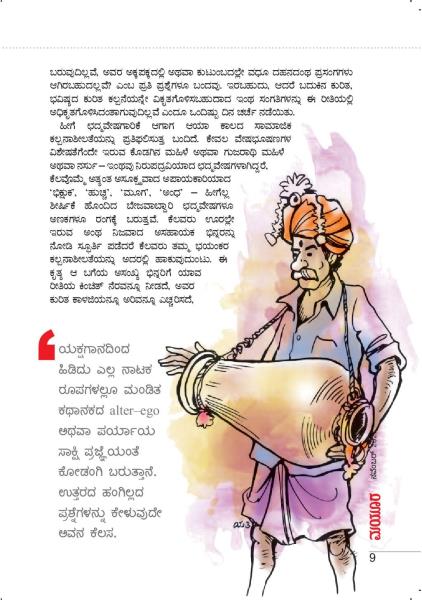 ಬರುವುದಿಲ್ಲವೆ, ಅವರ ಅಕ್ಕಪಕ್ಕದಲ್ಲಿ ಅಥವಾ ಕುಟುಂಬದಲ್ಲೇ ವಧೂ ದಹನದಂಥ ಪ್ರಸಂಗಗಳು
ಆಗಿರಬಹುದಲ್ಲವೆ? ಎಂಬ ಪ್ರತಿ ಪ್ರಶ್ನೆಗಳೂ ಬಂದವು. ಇರಬಹುದು, ಆದರೆ ಬದುಕಿನ ಕುರಿತ,
ಭವಿಷ್ಯದ ಕುರಿತ ಕಲ್ಪನೆಯನ್ನೇ ವಿಕೃತಗೊಳಿಸಬಹುದಾದ ಇಂಥ ಸಂಗತಿಗಳನ್ನು ಈ ರೀತಿಯಲ್ಲಿ
ಅಧಿಕೃತಗೊಳಿಸಿದಂತಾಗುವುದಿಲ್ಲವೆ ಎಂದೂ ಒಂದಿಷ್ಟು ದಿನ ಚರ್ಚೆ ನಡೆಯಿತು.
ಹೀಗೆ ಛದ್ಮವೇಷಗಾರಿಕೆ ಆಗಾಗ ಆಯಾ ಕಾಲದ ಸಾಮಾಜಿಕ
ಕಲ್ಪನಾಶೀಲತೆಯನ್ನು ಪ್ರತಿಫಲಿಸುತ್ತ ಬಂದಿದೆ. ಕೇವಲ ವೇಷಭೂಷಣಗಳ
ವಿಶೇಷತೆಗೆಂದೇ ಇರುವ ಕೊಡಗಿನ ಮಹಿಳೆ ಅಥವಾ ಗುಜರಾಥಿ ಮಹಿಳೆ
ಅಥವಾ ನರ್ಸು – ಇಂಥವು ನಿರುಪದ್ರವಿಯಾದ ಛದ್ಮವೇಷಗಳಾಗಿದ್ದರೆ,
ಕೆಲವೊಮ್ಮೆ ಅತ್ಯಂತ ಅಸೂಕ್ಷ್ಮವಾದ ಅಪಾಯಕಾರಿಯಾದ
'ಭಿಕ್ಷುಕ', 'ಹುಚ್ಚ', 'ಮೂಗ', 'ಅಂಧ' – ಹೀಗೆಲ್ಲ
ಶೀರ್ಷಿಕೆ ಹೊಂದಿದ ಬೇಜವಾಬ್ದಾರಿ ಛದ್ಮವೇಷಗಳೂ
ಅಣಕಗಳೂ ರಂಗಕ್ಕೆ ಬರುತ್ತವೆ. ಕೆಲವರು ಊರಲ್ಲೇ
ಇರುವ ಅಂಥ ನಿಜವಾದ ಅಸಹಾಯಕ ಭಿನ್ನರನ್ನು
ನೋಡಿ ಸ್ಫೂರ್ತಿ ಪಡೆದರೆ ಕೆಲವರು ತಮ್ಮ ಭಯಂಕರ
ಕಲ್ಪನಾಶೀಲತೆಯನ್ನು ಅದರಲ್ಲಿ ಹಾಕುವುದುಂಟು. ಈ
ಕೃತ್ಯ ಆ ಬಗೆಯ ಅಸಂಖ್ಯ ಭಿನ್ನರಿಗೆ ಯಾವ
ರೀತಿಯ ಕಿಂಚಿತ್ ನೆರವನ್ನೂ ನೀಡದೆ, ಅವರ
ಕುರಿತ ಕಾಳಜಿಯನ್ನೂ ಅರಿವನ್ನೂ ಎಚ್ಚರಿಸದೆ,
ಯಕ್ಷಗಾನದಿಂದ
ಹಿಡಿದು ಎಲ್ಲ ನಾಟಕ
ರೂಪಗಳಲ್ಲೂ ಮಂಡಿತ
ಕಥಾನಕದ alter–ego
ಅಥವಾ ಪರ್ಯಾಯ
ಸಾಕ್ಷಿ ಪ್ರಜ್ಞೆಯಂತೆ
ಕೋಡಂಗಿ ಬರುತ್ತಾನೆ.
ಉತ್ತರದ ಹಂಗಿಲ್ಲದ
ಪ್ರಶ್ನೆಗಳನ್ನು ಕೇಳುವುದೇ
ಅವನ ಕೆಲಸ.
ಮಯೂರ
ನವೆಂಬರ್
9